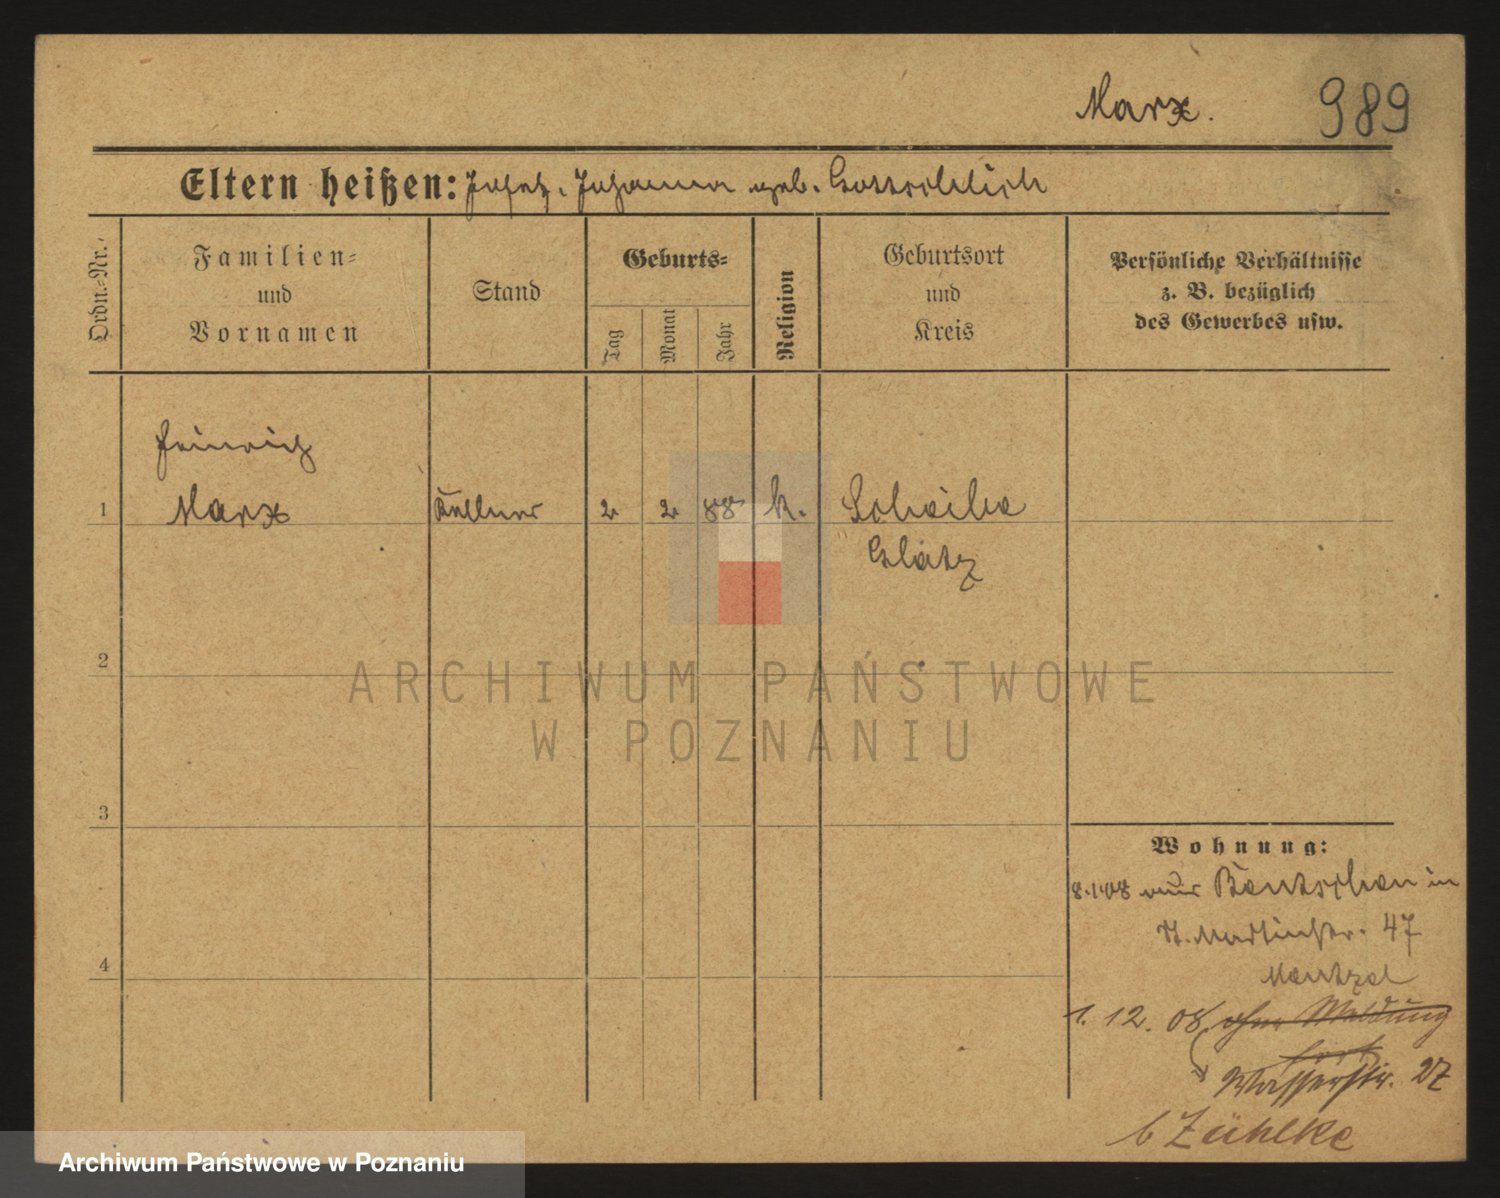 Marx.
989
Eltern heißen: Josef, Johanna geb. Gottschlich
Ordn.-Nr.
Familien-
und
Vornamen
Stand
Geburts-
Tag
Monat
Jahr
Religion
Geburtsort
und
Kreis
Persönliche Verhältnisse
z. B. bezüglich
des Gewerbes usw.
Heinrich
1 Marx Kellner 2 2 88 k.
Glatz
2
ARCHIWUM PAŃSTWOWE
W POZNANIU
3
Wohnung:
8.1.08 aus Bentschen in
St. Martinstr. 47
Mentzel
4
1. 12. 08 ohne Meldung
fort
Wasserstr. 27
b Zühlke
Archiwum Państwowe w Poznaniu